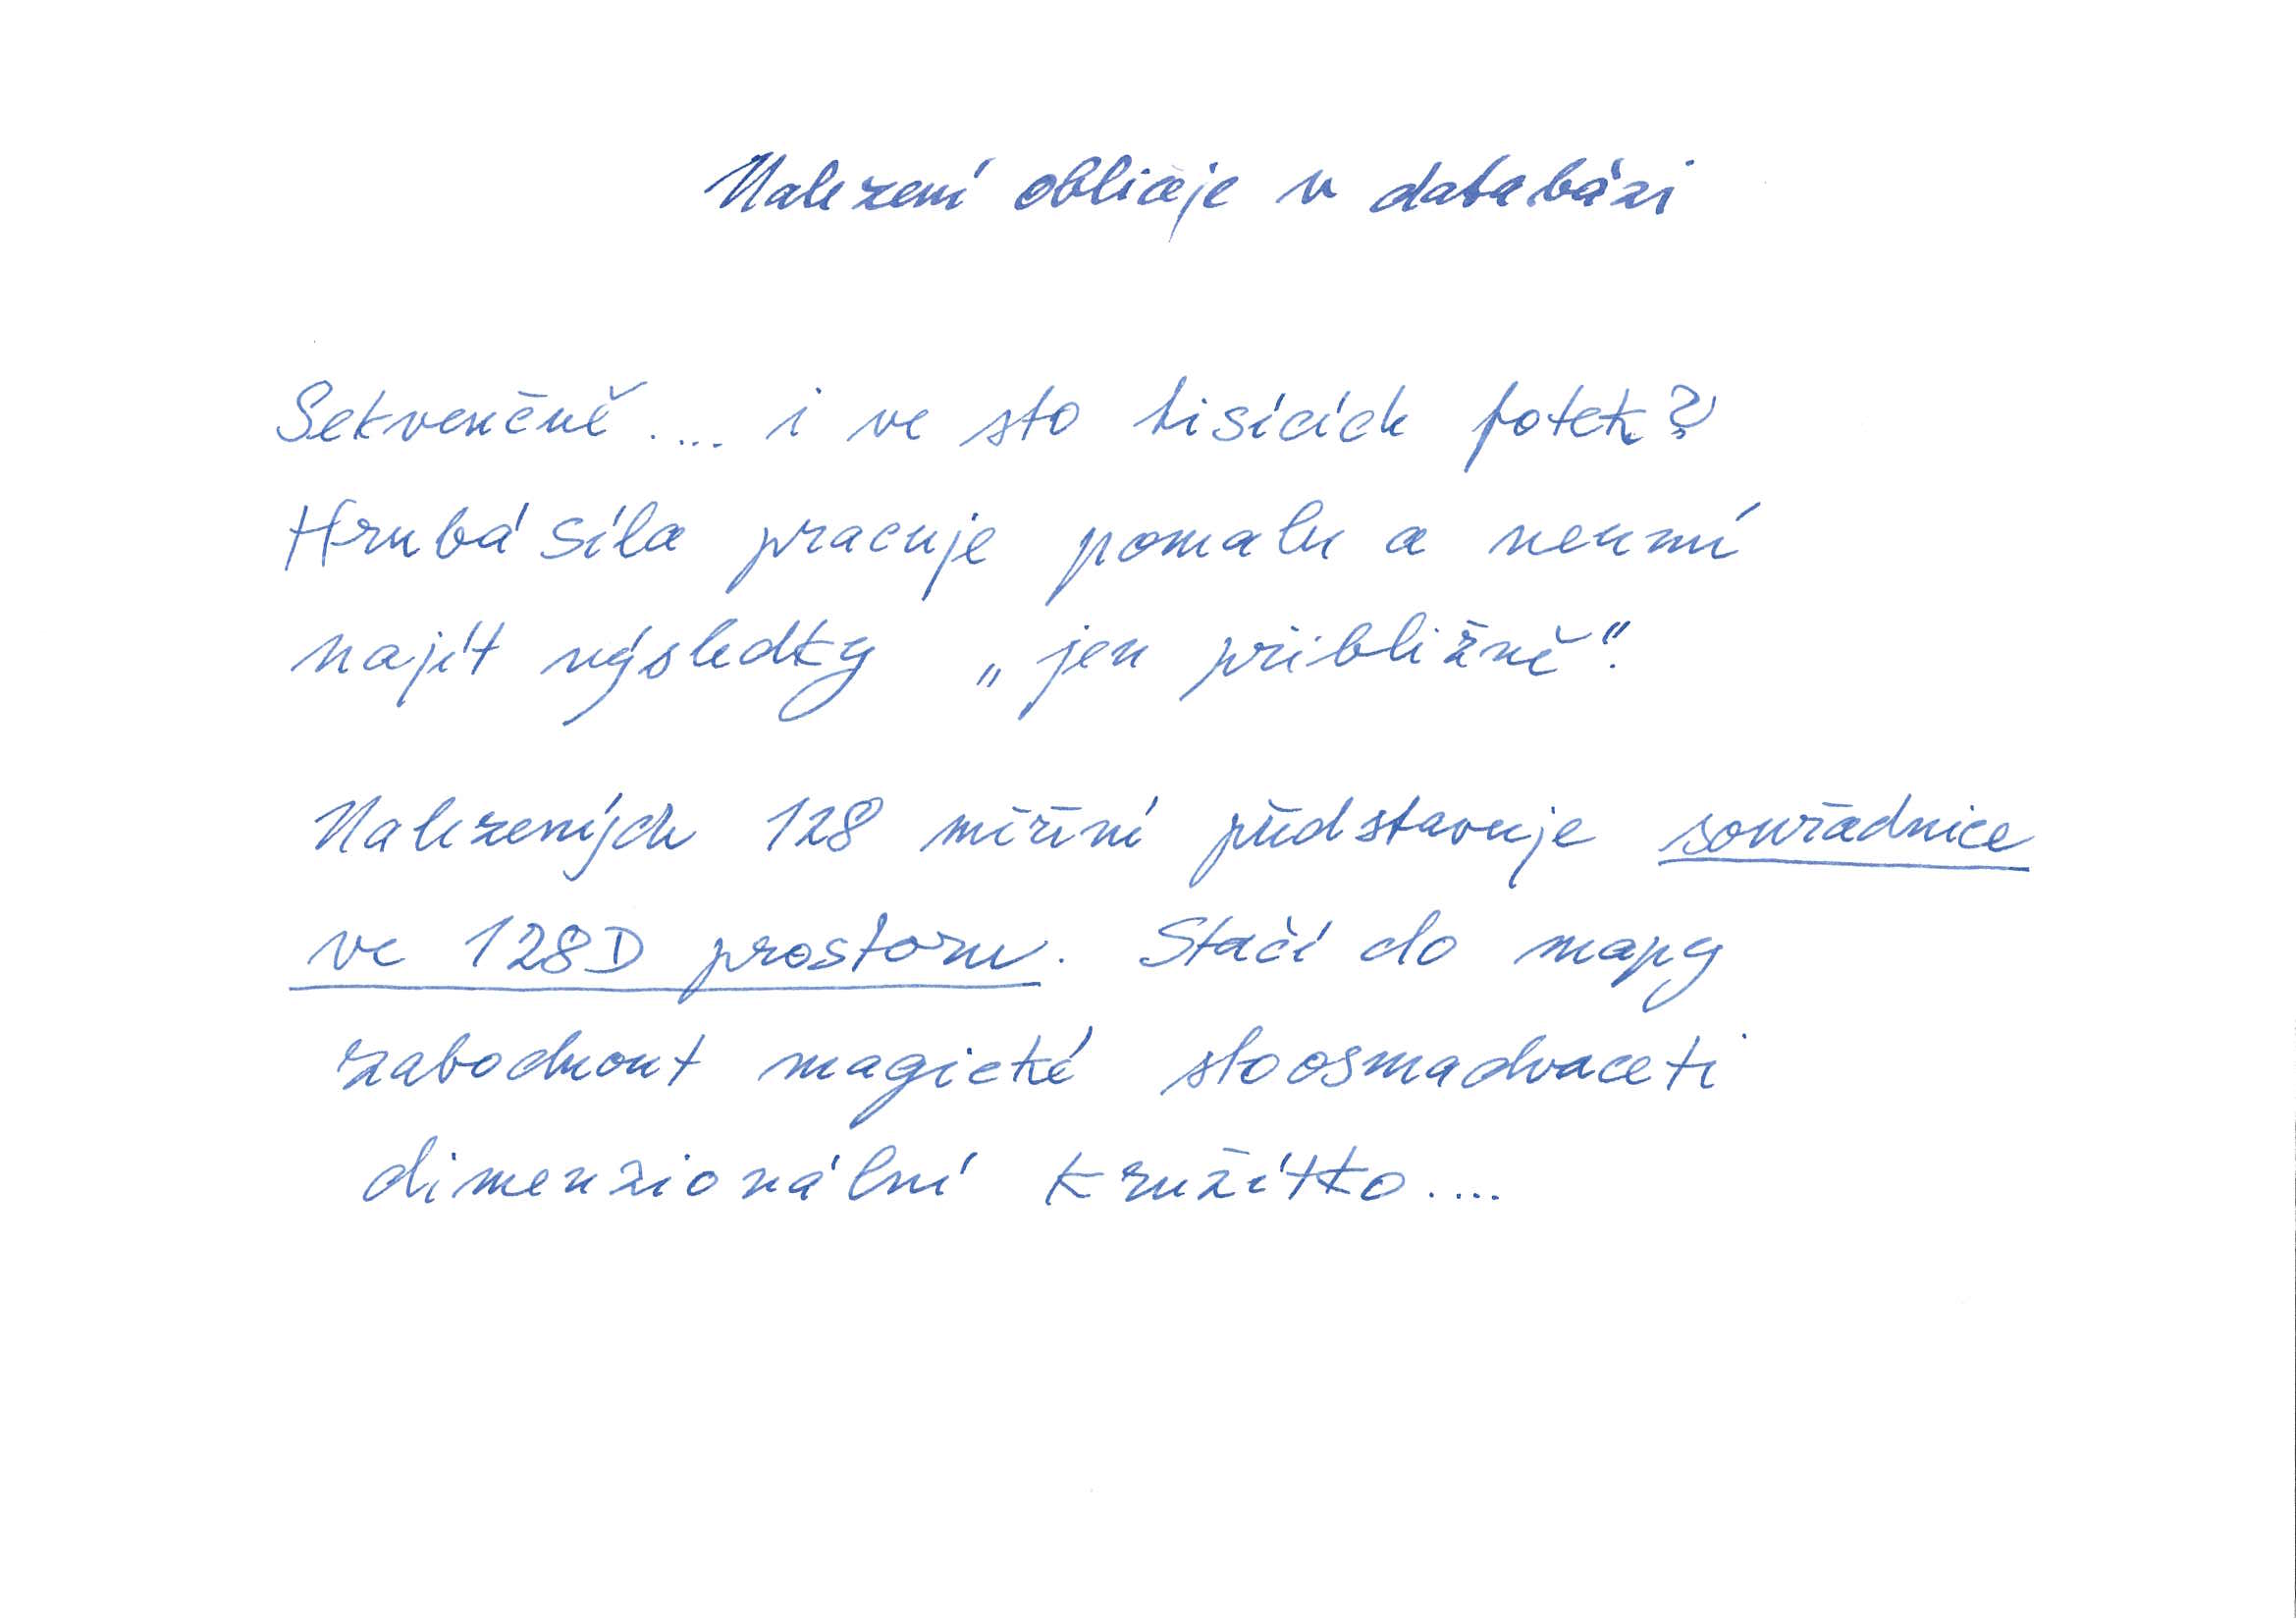 Nalezení obličeje v databázi
Sekvenčně .... i ve sto tisících fotek?
Hrubá síla pracuje pomalu a neumí
najít výsledky „jen přibližně“.
Nalezených 128 měření představuje souřadnice
ve 128D prostoru. Stačí do mapy
zabodnout magické stoosmadvaceti
dimenzionální kružítko....